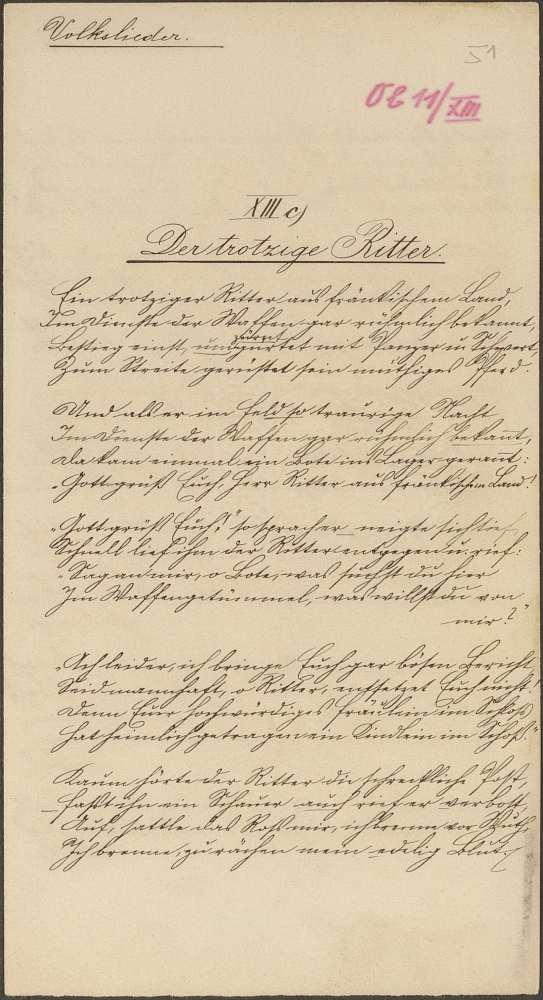 Volkslieder.
51
OE 11/XIII
XIII c)
Der trotzige Ritter.
Ein trotziger Ritter aus fränkischem Land,
Im Dienste der Waffen gar rühmlich bekannt,
Bestieg einst, und gürtet mit Panzer u Schwert,
Zum Streite gerüstet, sein muthiges Pferd.
Und als er im Feld so traurige Nacht
Im Dienste der Waffen gar rühmlich bekannt,
Da kam einmal ein Bote ins Lager gerannt:
„Gott grüß Euch Herr Ritter aus fränkischem Land!
„Gott grüß Euch!" so sprach er neigte sich tief,
Schnell lief ihm der Ritter entgegen u. rief:
„Sag an mir, o Bote, was suchst du hier
Im Waffengetümmel, was willst du von
mir?"
„Ach leider, ich bringe Euch gar bösen Bericht
Seid mannhaft, o Ritter, entsetzet Euch nicht!
Denn Euer hochwürdiges Fräulein im Schloß,
Hat heimlich getragen ein Kindlein im Schoß."
Kaum hörte der Ritter die schreckliche Post,
Faßt ihn ein Schauer auch rief er erbost,
Auf, sattle das Roß mir, ich brenne vor Wuth,
Ich brenne, zu rächen mein edelig Blut